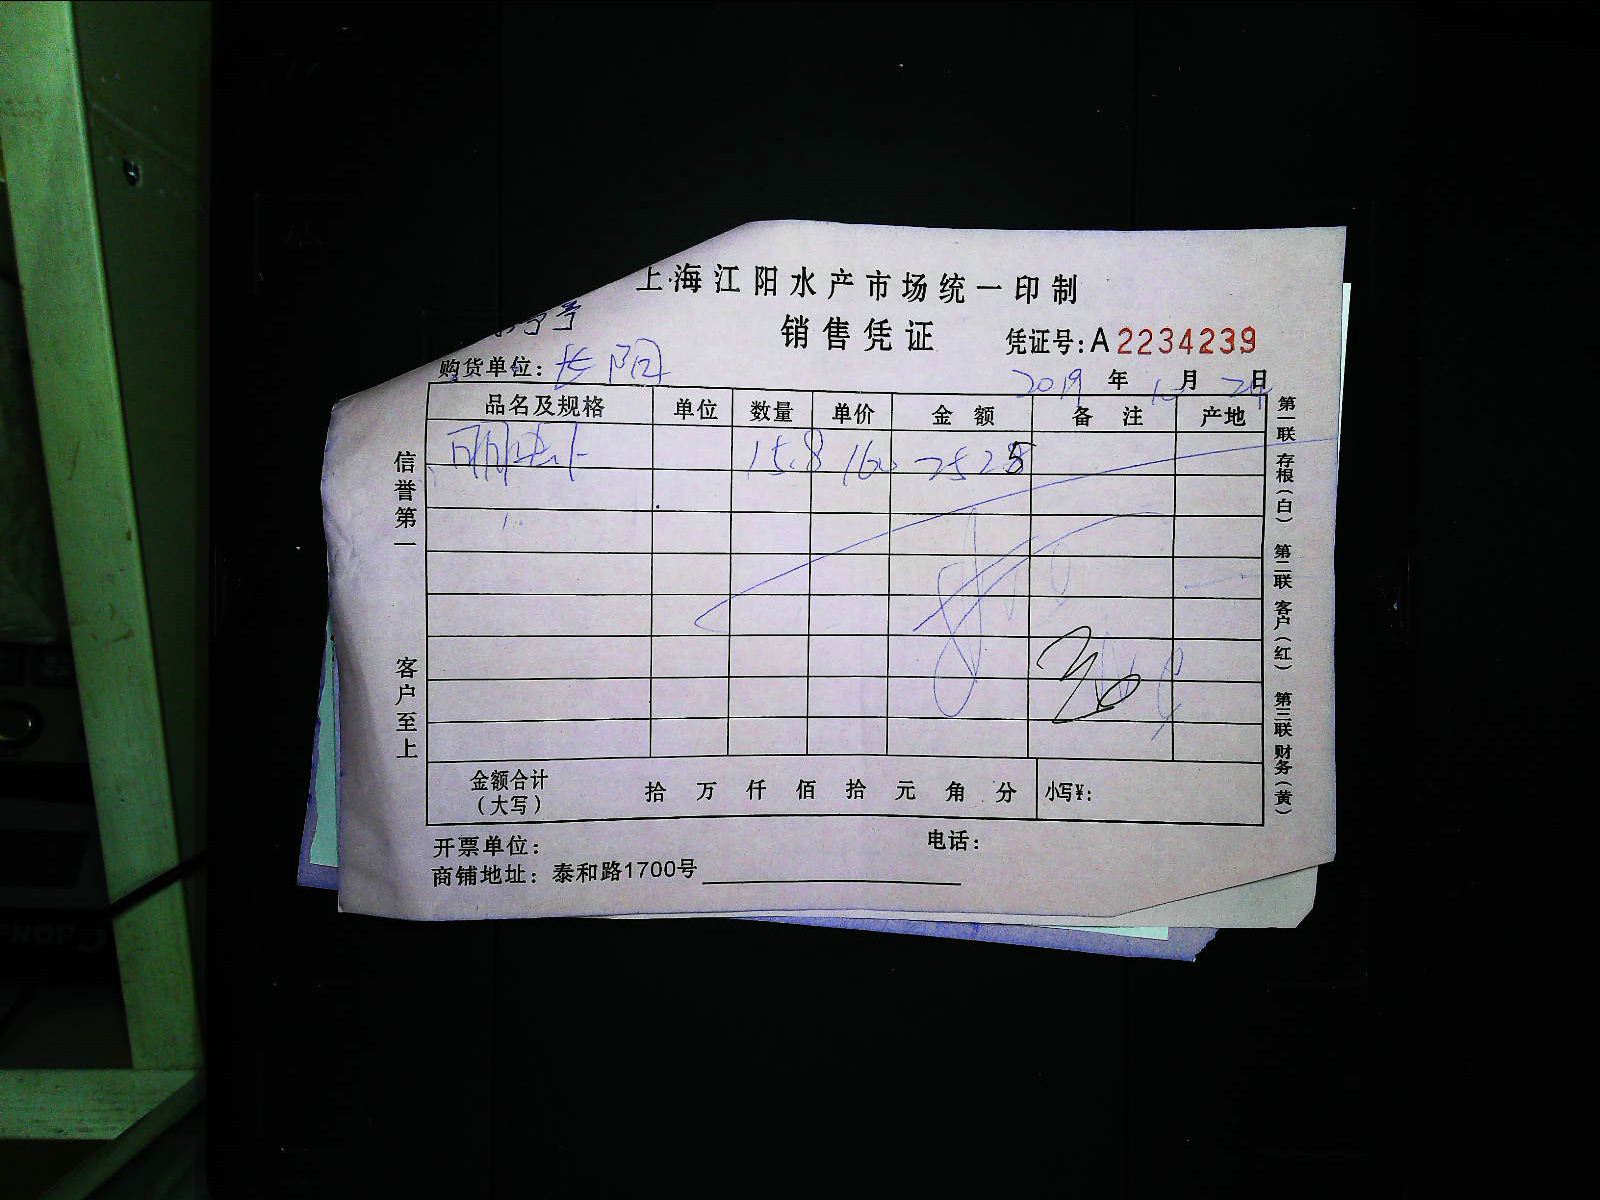 上海江阳水产市场统一印制
销售凭证
凭证号:A2234239
购货单位: 长阳
2019 年 月 24 日
品名及规格 单位 数量 单价 金额 备注 产地
15.8 160 2528
金额合计(大写) 拾 万 仟 佰 拾 元 角 分 小写¥:
开票单位: 电话:
商铺地址: 泰和路1700号
信誉第一
客户至上
第一联 存根(白) 第二联 客户(红) 第三联 财务(黄)